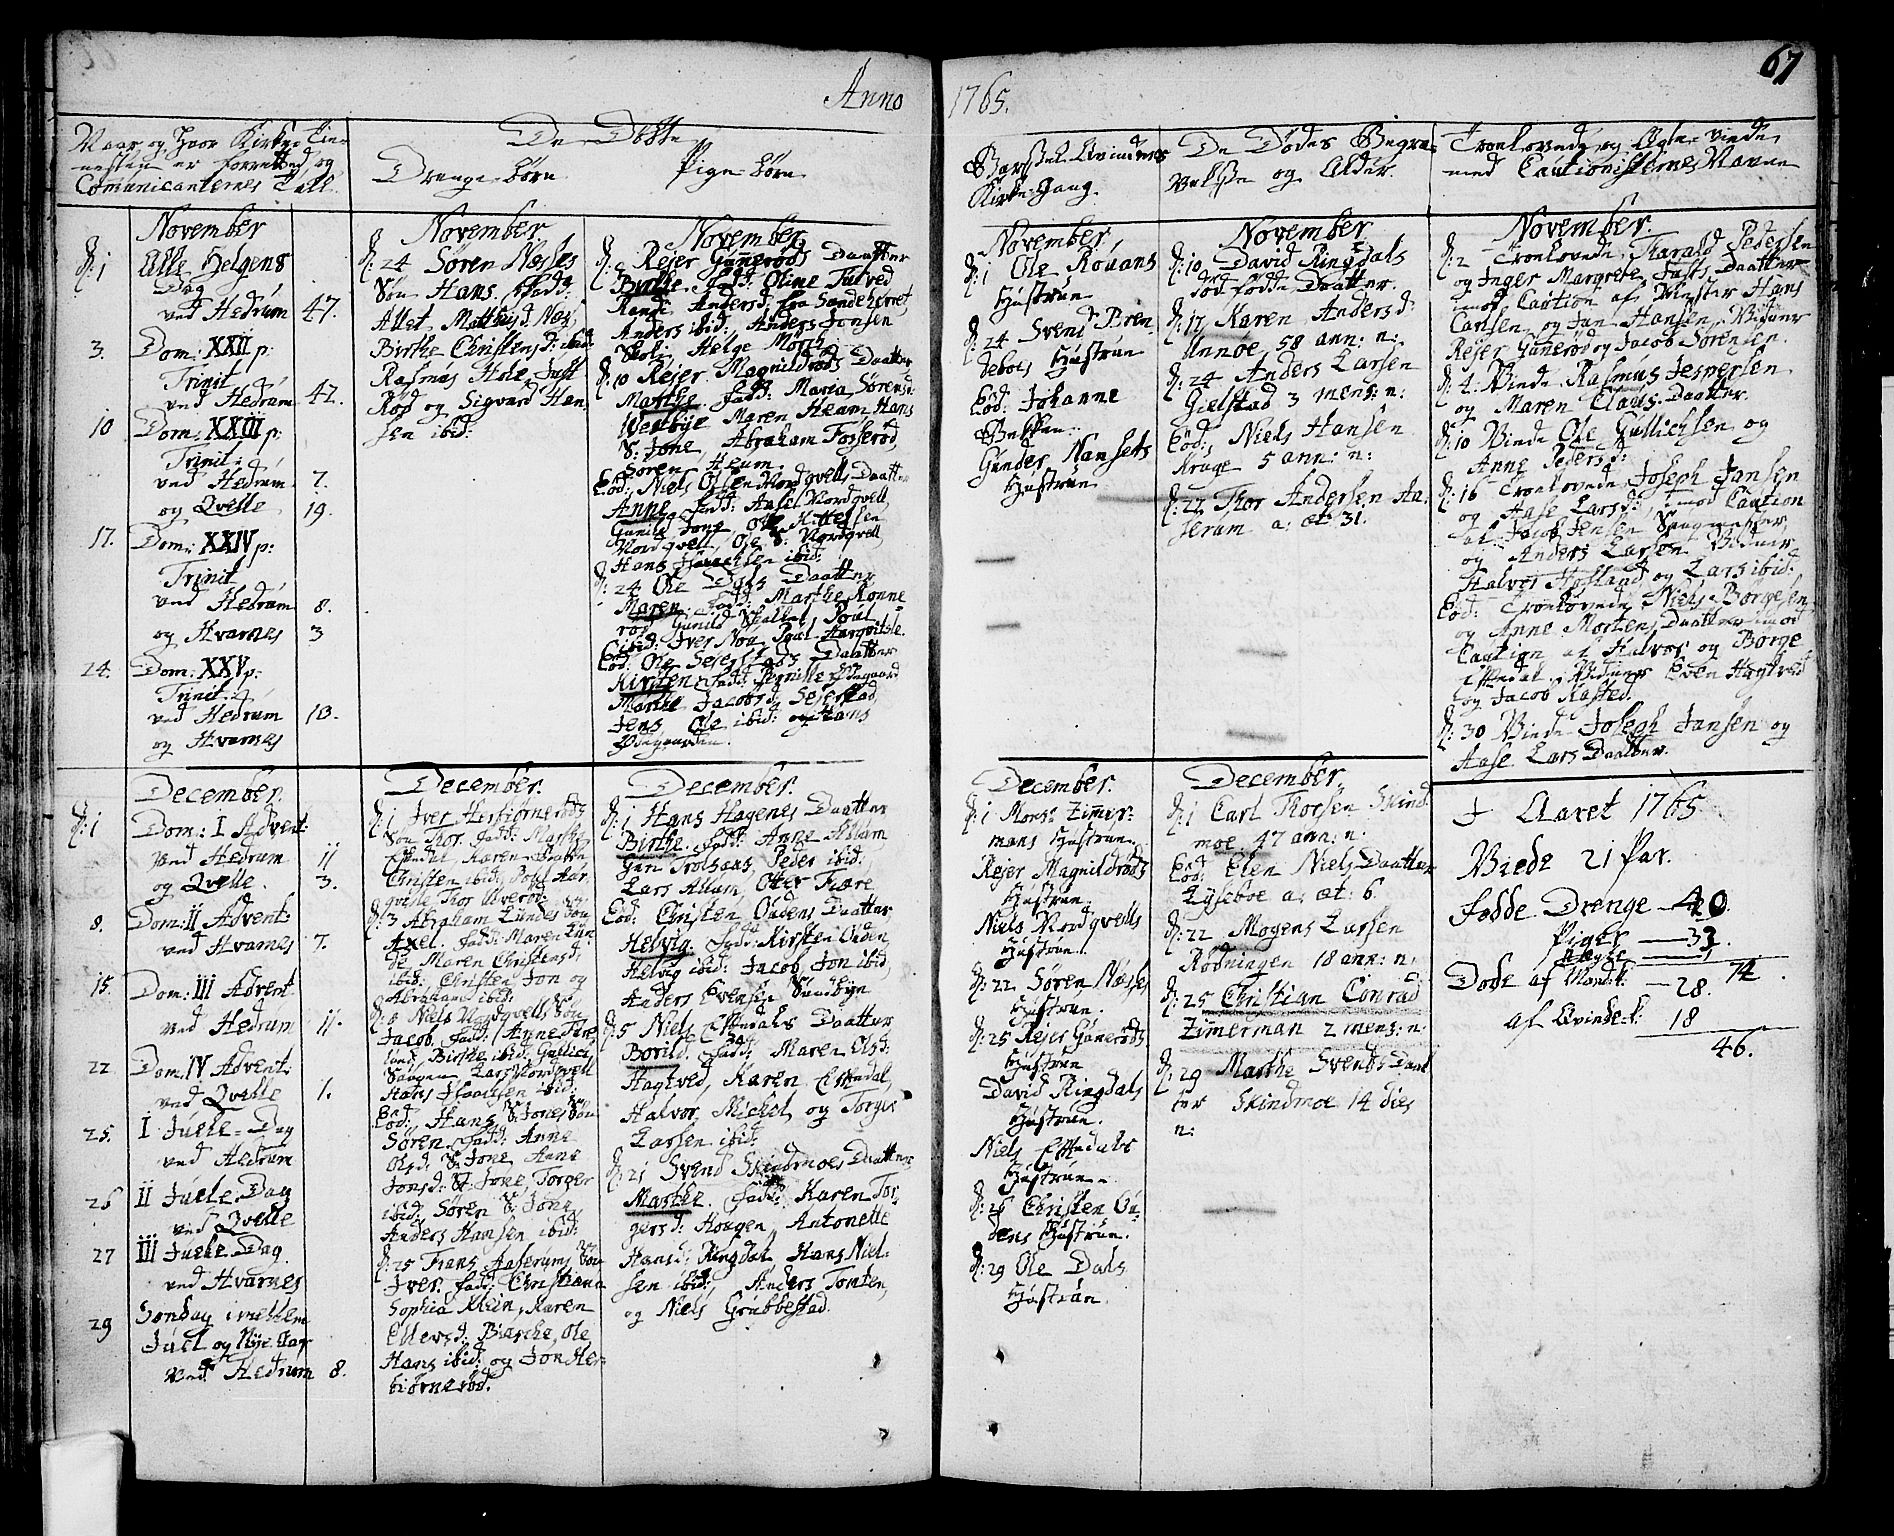 67
Anno 1765.
Naar og hvor Kirke-Tie-
nesten er forretted og
Comunicanternes Tall.
De Døbte
Drenge børn
Pige børn
Barsel-Qvindernes
Kirke-Gang.
De Dødes Begra-
velse og Alder.
Troelovede og Ægte-viede
med Cautionisternes Navne
November
d: 1 Alle Helgens
Dag
ved Hedrum 47.
3. Dom: XXII p:
Trinit
ved Hedrum 42.
10 Dom: XXIII p:
Trinit:
ved Hedrum 7.
og Qvelle 19.
17. Dom: XXIV p:
Trinit
ved Hedrum 8.
og Hvarnes 3
24. Dom: XXV p:
Trinit:
ved Hedrum 13.
og Hvarnes
November
d: 24 Søren Næsses
Søn Hans. fadd:
Allet Matthisd: Næs,
Birthe Christensd: ibid:
Rasmus Hole, Just
Rød og Sigvard Han-
sen ibid:
November
Rejer Gunerøds Daatter
Birthe. fadd: Oline Tutved
Randi Andersd: fra Sandeherret,
Anders ibid:, Anders Jonsen
Skoli, Helge Moria
d: 10 Rejer Magnildrøds Daatter
Marthe. fadd: Maria Sørensd:
Vestbye Maren Heum, Hans
S: Jone, Abraham Fosserød,
Søren Heum.
Eod: Niels Olsen Nordqvells Daatter
Anne. fadd: Aasel Nordqvell,
Gunild Jone, Ole Kittelsen
Nordqvell, Ole S: Nordqvell,
Hans Isaachsen ibid:
d: 24 Ole Dals Daatter
Maren. fadd: Marthe Rønne-
rød Gunild Skallet, Poul
ibid: Iver Noa Poul Haaqvitsle.
Eod: Ole Seierstads Daatter
Kirsten. fadd: Pernille Ødegaard
Marthe Jacobsd: Seierstad,
Jens Ole ibid: og Hans
Ødegaarden.
November
d: 1 Ole Rouans
Hustrue
d: 24 Svend Bren
deboes Hustrue
Eod: Johanne
Bekken.
Gunder Nansets
Hustrue
November
d: 10 David Ringdals
død fødde Daatter.
d: 17 Karen Andersd:
Unnøe, 58 ann: n:
d: 24 Anders Larsen
Gielstad 3 mens: n:
Eod: Niels Hansen
Kruge 5 ann: n:
d: 22 Thor Andersen Aa-
serum a: æt: 31.
November.
d: 2 Troelovede Harald Pedersen
og Inger Margrethe Justs Daatter
mod Caution af Mester Hans
Carlsen og Jan Hansen, Vidner
Rejer Gunerød og Jacob Sørensen.
d: 4 Viede Rasmus Jespersen
og Maren Claus Daatter.
d: 10 Viede Ole Gullichsen og
Anne Pedersd:
d: 16 Troelovede Joseph Jansen
og Aase Larsd:, mod Caution
af Jacob Jensen Saugmester
og Anders Larsen Vidner
Halvor Hofland og Lars ibid:
Eod: Troelovede Niels Børgesen
og Anne Mortens Daatter imod
Caution af Halvor og Børge
Estedal, Vidner Even Hagtved
og Jacob Kasted.
d: 30 Viede Joseph Jansen og
Aase Lars Daatter.
December.
d: 1 Dom: I Advent:
Ved Hedrum 11
og Qvelle. 3.
8. Dom: II Advent:
ved Hvarnes 7.
15. Dom: III Advent
ved Hedrum 11.
22 Dom: IV Advent:
ved Qvelle 1.
25. I Juele-Dag
ved Hedrum
26 II Juele-Dag
ved Qvelle
27 III Juele-Dag
ved Hvarnes
29 Søndag imellem
Juel og Nye-Aar
Ved Hedrum 8.
December.
d: 1 Iver Herbiørnerøds
Søn Thor. fadd: Marthe
Estedal Karen
Christen ibid: Poul Aar-
qvisle Thor Ulverød
d: 3 Abraham Lundes Søn
Axel. fadd: Maren Lun-
de Maren Christensd:
ibid: Christen Jon og
Abraham ibid:
d: 8 Niels Nordqvells Søn
Jacob. fadd: Anne
Birthe ibid: Gullich
Lars Nordqvell
Hans Isaachsen ibid:
Eod: Hans S: Jones Søn
Søren. fadd: Anne
Olsd: S: Jone, Anne
Jonsd: S: Jone, Torger
ibid: Søren S: Jone,
Anders Hansen ibid:
d: 25 Frans Aaserums Søn
Iver. fadd: Christiana
Sophia Klein, Karen
Ellevsd: Biørche, Ole,
Hans ibid: og Jon Her-
biørnerød.
December.
d: 1 Hans Hagenes Daatter
Birthe. fadd: Anne Allum
Peder ibid:
Lars Allum, Otter Fiære
Eod: Christen Oudens Daatter
Helvig. fadd: Kirsten Ouden
Helvig ibid: Jacob, Jon ibid,
Anders Evensen Sundbye
d: 5 Niels Estedahs Daatter
Borild. fadd: Maren Olsd:
Hagtved, Karen Estedal,
Halvor, Michel og Torger
Larsen ibid:
d: 21 Svend Skindmoes Daatter
Marthe. fadd: Karen Tor-
gersd: Hougen, Antonette
Hansd: Ringdal Hans Niel-
sen ibid:, Anders Tomten,
og Niels Grubbestad.
December.
d: 1 Mons: Zimer-
mans Hustrue.
Rejer Magnildrøds
Hustrue
Niels Nordqvells
Hustrue.
d: 22 Søren Næsses
Hustrue.
d: 25 Rejer Gunerøds
Hustrue
David Ringdals
Hustrue.
Niels Estedahs
Hustrue.
d: 26 Christen Ou-
dens Hustrue.
d: 29 Ole Dals
Hustrue.
December
d: 1 Carl Thorsen Skind
moe 47 ann: n.
Eod: Elen Niels Daatter
Lyseboe a: æt: 6.
d: 22 Mogens Larsen
Rødningen 18 ann: n:
d: 25 Christian Conrad
Zimerman 2 mens: n:
d: 29 Marthe Svends Daat
ter Skindmoe 14 dies
n:
I Aaret 1765
Viede 21 Par.
fødde Drenge 40
Piger 33.
1
74.
Døde af Mandk: 28.
af Qvindek: 18
46.